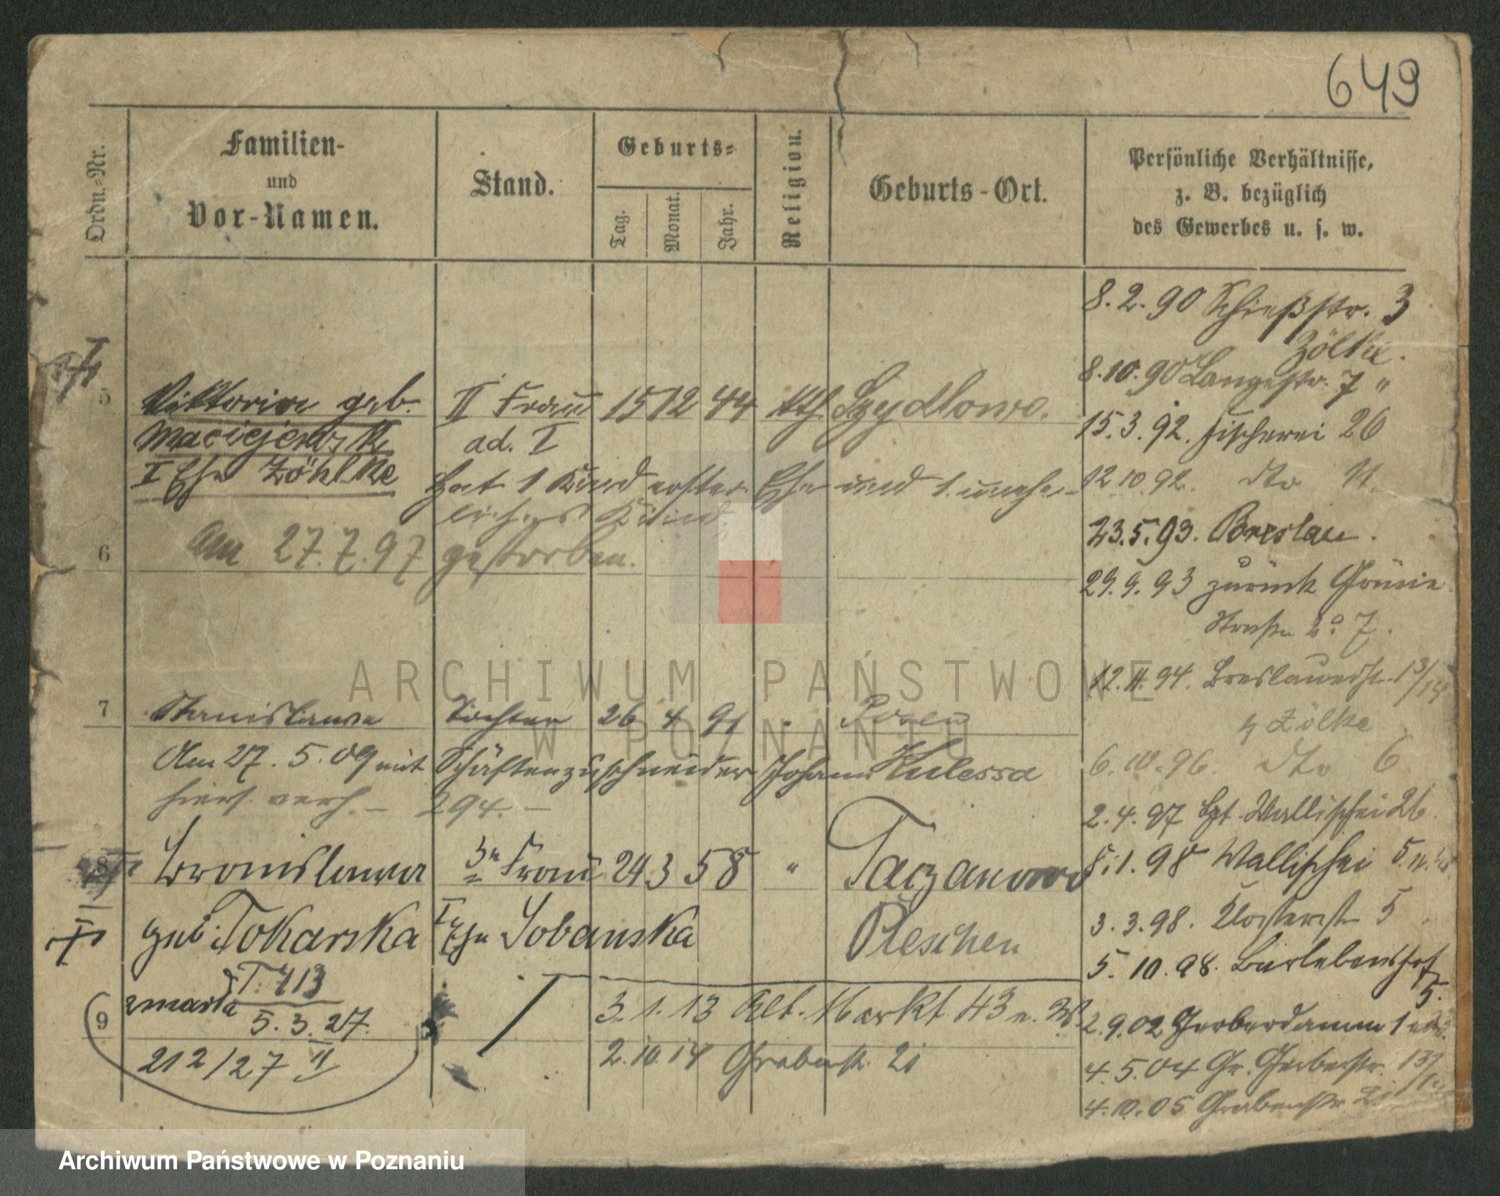 649
Ordn.-Nr.
Familien-
und
Vor-Namen.
Stand.
Geburts-
Tag.
Monat.
Jahr.
Religion.
Geburts-Ort.
Persönliche Verhältnisse,
z. B. bezüglich
des Gewerbes u. s. w.
5 Viktoria geb. II Frau 15 12 44 kth. Szydlowo.
Maciejewska ad. I
I Ehe Zöhlke hat 1 Kind erster Ehe und 1 unehe-
liches Kind
6 am 27.7.97 gestorben.
7 Stanislawa Tochter 26 4 91 Posen
Am 27. 5. 09 mit Schäftenzuschneider Johann Kulessa
hier verh. – 294. –
8 Bronislawa 3te Frau 24 3 58 " Taczanowo
geb. Tokarska I Ehe Sobanska Pleschen
zmarła T. 413
5. 3. 27.
9
212/27 II
3. 1. 13 Alt. Markt 43
2. 10. 14 Grabenstr. 21
8. 2. 90 Schießstr. 3
Zölke.
8. 10. 90 Langestr. 7 "
15. 3. 92. Fischerei 26
12. 10. 92. dto 11.
23. 5. 93. Breslau.
29. 9. 93 zurück
Straße No 7.
12. 11. 94. Breslauerstr. 13/14
Zölke
6. 10. 96. dto 6
2. 4. 97 Wallischei 26
8. 1. 98 Wallischei 5
3. 3. 98. Klosterstr 5
5. 10. 98. Barlebenshof
5.
2. 9. 02 Gerberdamm 1
4. 5. 04 Gr. Gerberstr. 13/14
4. 10. 05 Grabenstr. 21
ARCHIWUM PAŃSTWOWE
W POZNANIU
Archiwum Państwowe w Poznaniu